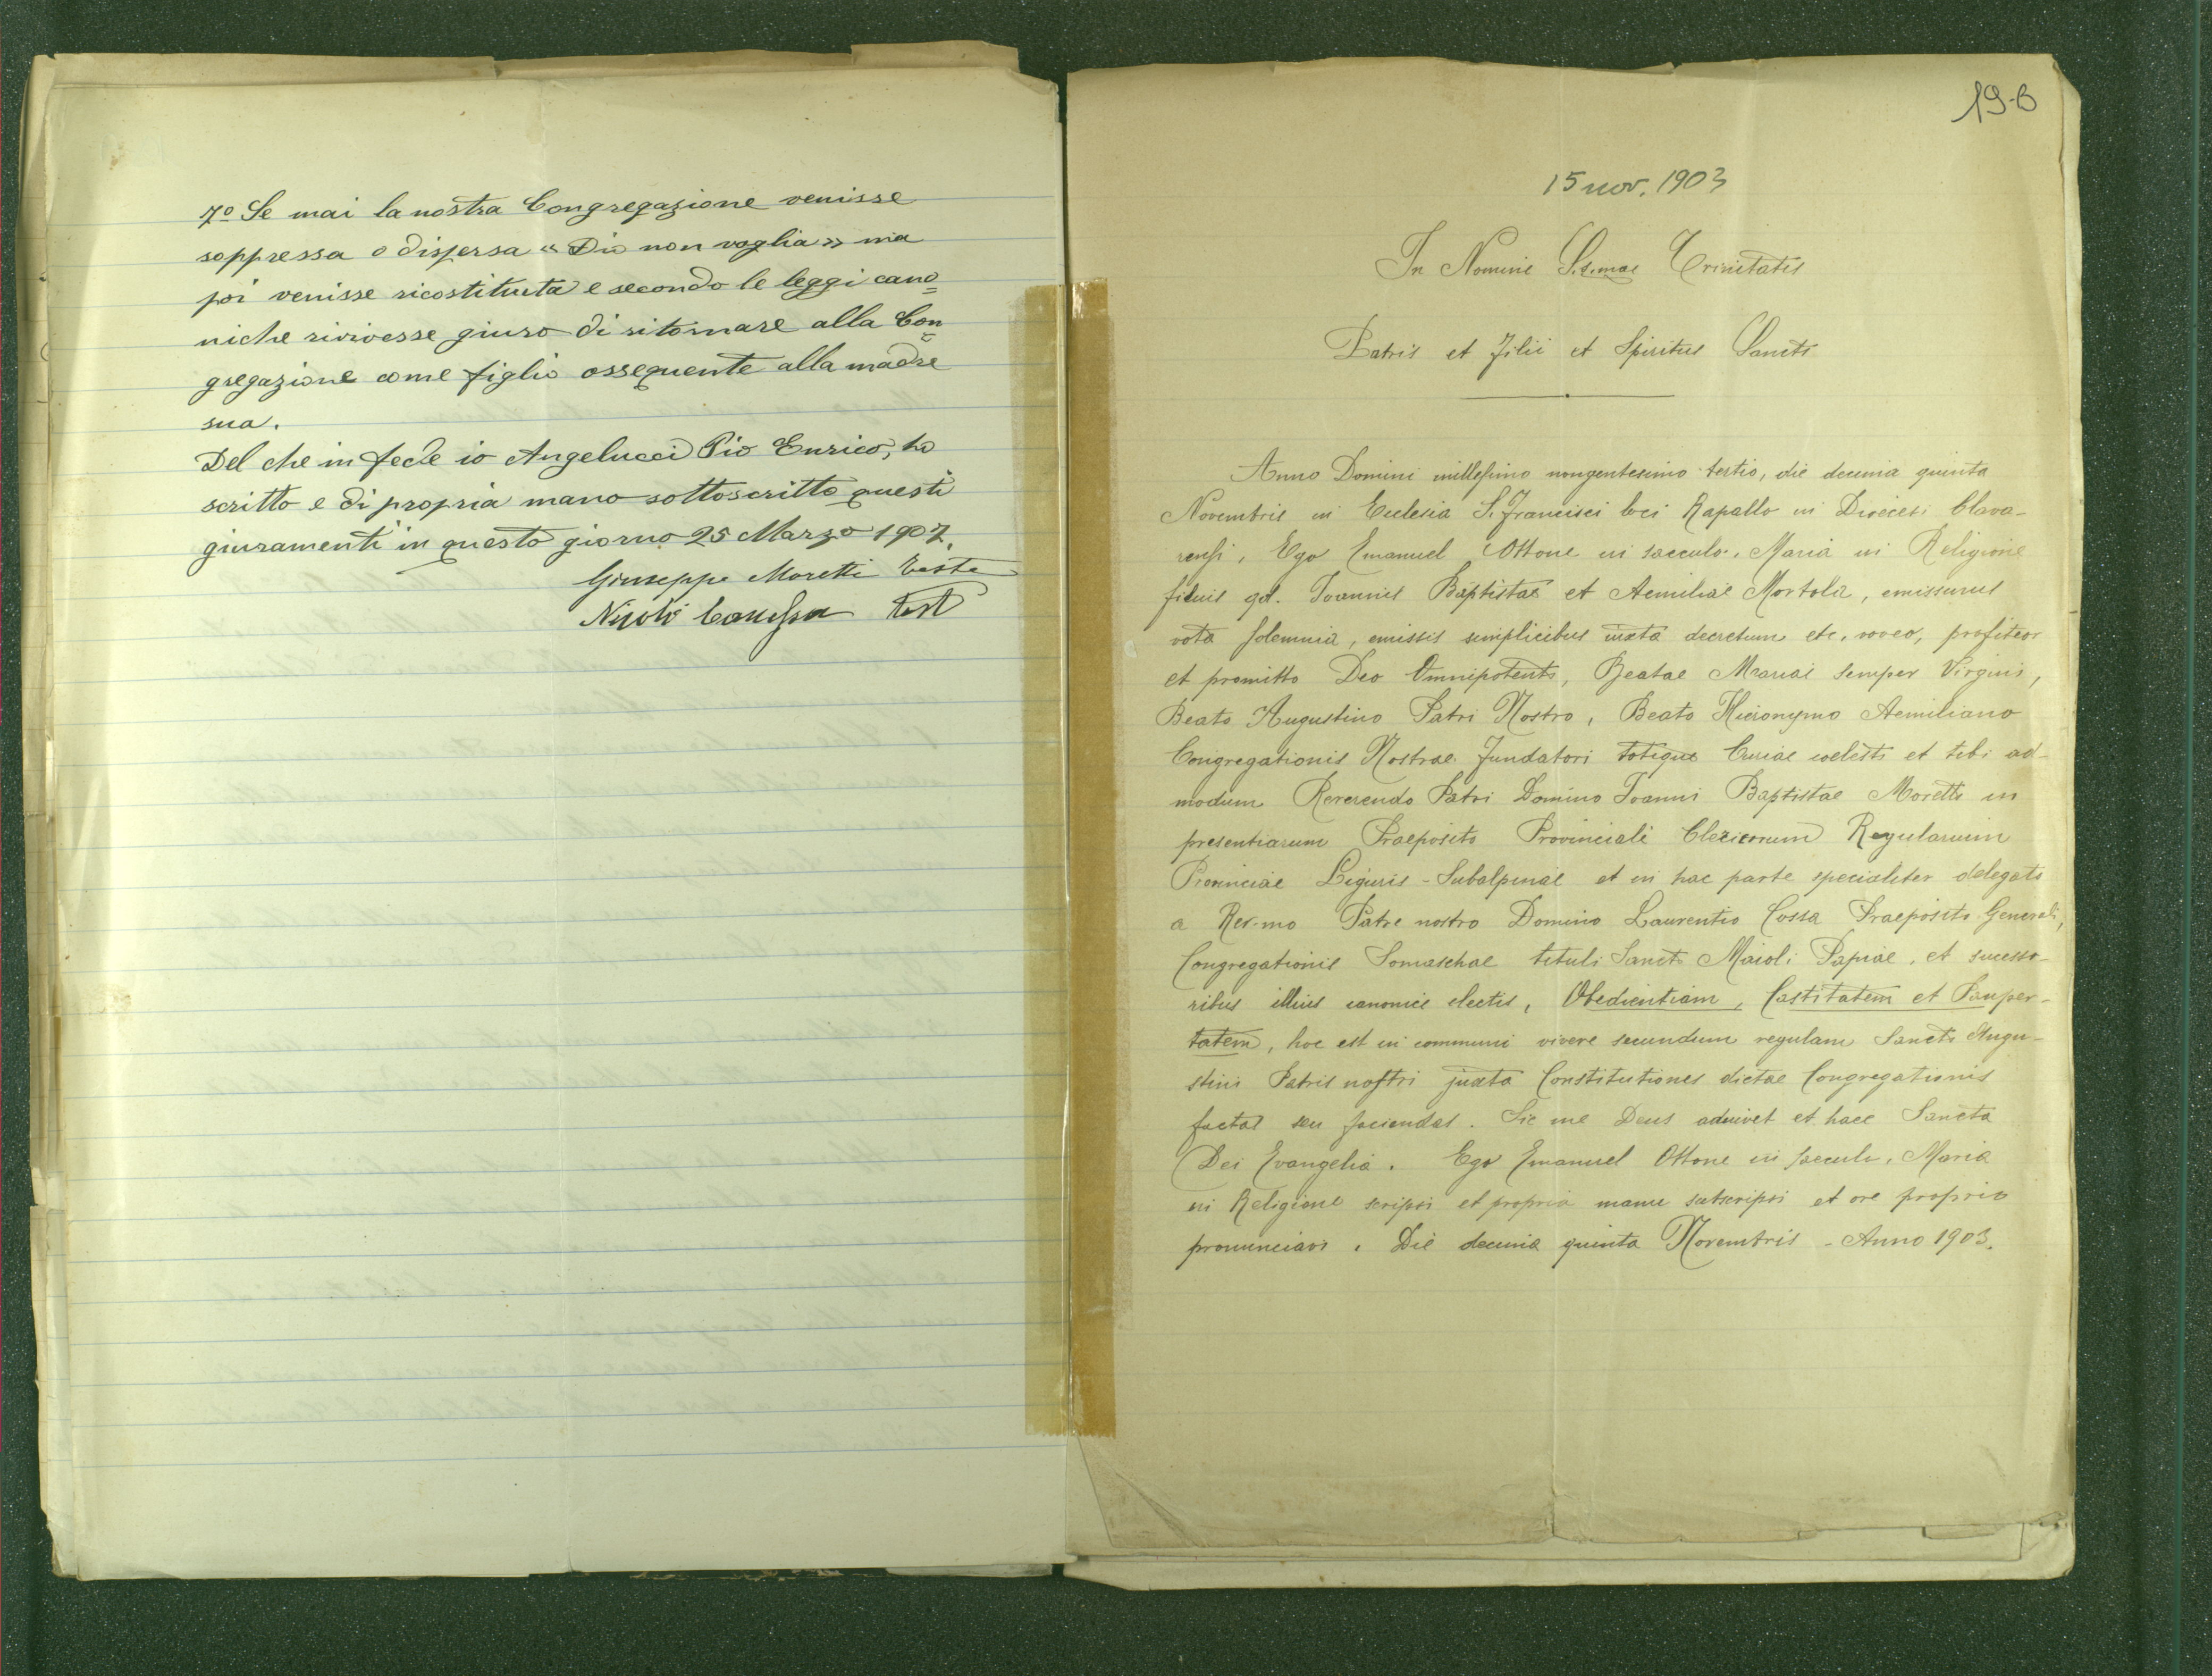 7º Se mai la nostra Congregazione venisse
soppressa o dispersa « Dio non voglia » ma
poi venisse ricostituta e secondo le leggi cano=
niche rivivesse giuro di ritornare alla Con=
gregazione come figlio ossequente alla madre
sua.
Del che in fede io Angelucci Pio Enrico, ho
scritto e di propria mano sottoscritto questi
giuramenti in questo giorno 25 Marzo 1907.
Giuseppe Moretti Teste
Nicolò Canessa test
19-B
15 nov. 1903
In Nomine S.s.mae Trinitatis
Patris et Filii et Spiritus Sancti
Anno Domini millesimo nongentesimo tertio, die decima quinta
Novembris in Ecclesia S. Francisci loci Rapallo in Diœcesi Clava-
rensi, Ego Emanuel Ottone in saeculo, Maria in Religione
filius qd. Joannis Baptistae et Aemiliae Mortola, emissurus
vota solemnia, emissis simplicibus iuxta decretum etc. voveo, profiteor
et promitto Deo Omnipotenti, Beatae Mariae semper Virgini,
Beato Augustino Patri Nostro, Beato Hieronymo Aemiliano
Congregationis Nostrae Fundatori totique Curiae coelesti et tibi ad-
modum Reverendo Patri Domino Joanni Baptistae Moretti in
presentiarum Praeposito Provinciali Clericorum Regularium
Provinciae Liguris - Subalpinae et in hac parte specialiter delegato
a Rev.mo Patre nostro Domino Laurentio Cossa Praeposito Generali,
Congregationis Somaschae tituli Sancti Maioli Papiae, et sucesso-
ribus illius canonice electis, Obedientiam, Castitatem et Pauper-
tatem, hoc est in communi vivere secundum regulam Sancti Augu-
stini Patris nostri juxta Constitutiones dictae Congregationis
factas seu faciendas. Sic me Deus adiuvet et haec Sancta
Dei Evangelia. Ego Emanuel Ottone in saeculo, Maria
in Religione scripsi et propria manu subscripsi et ore proprio
pronunciavi. Die decima quinta Novembris - Anno 1903.